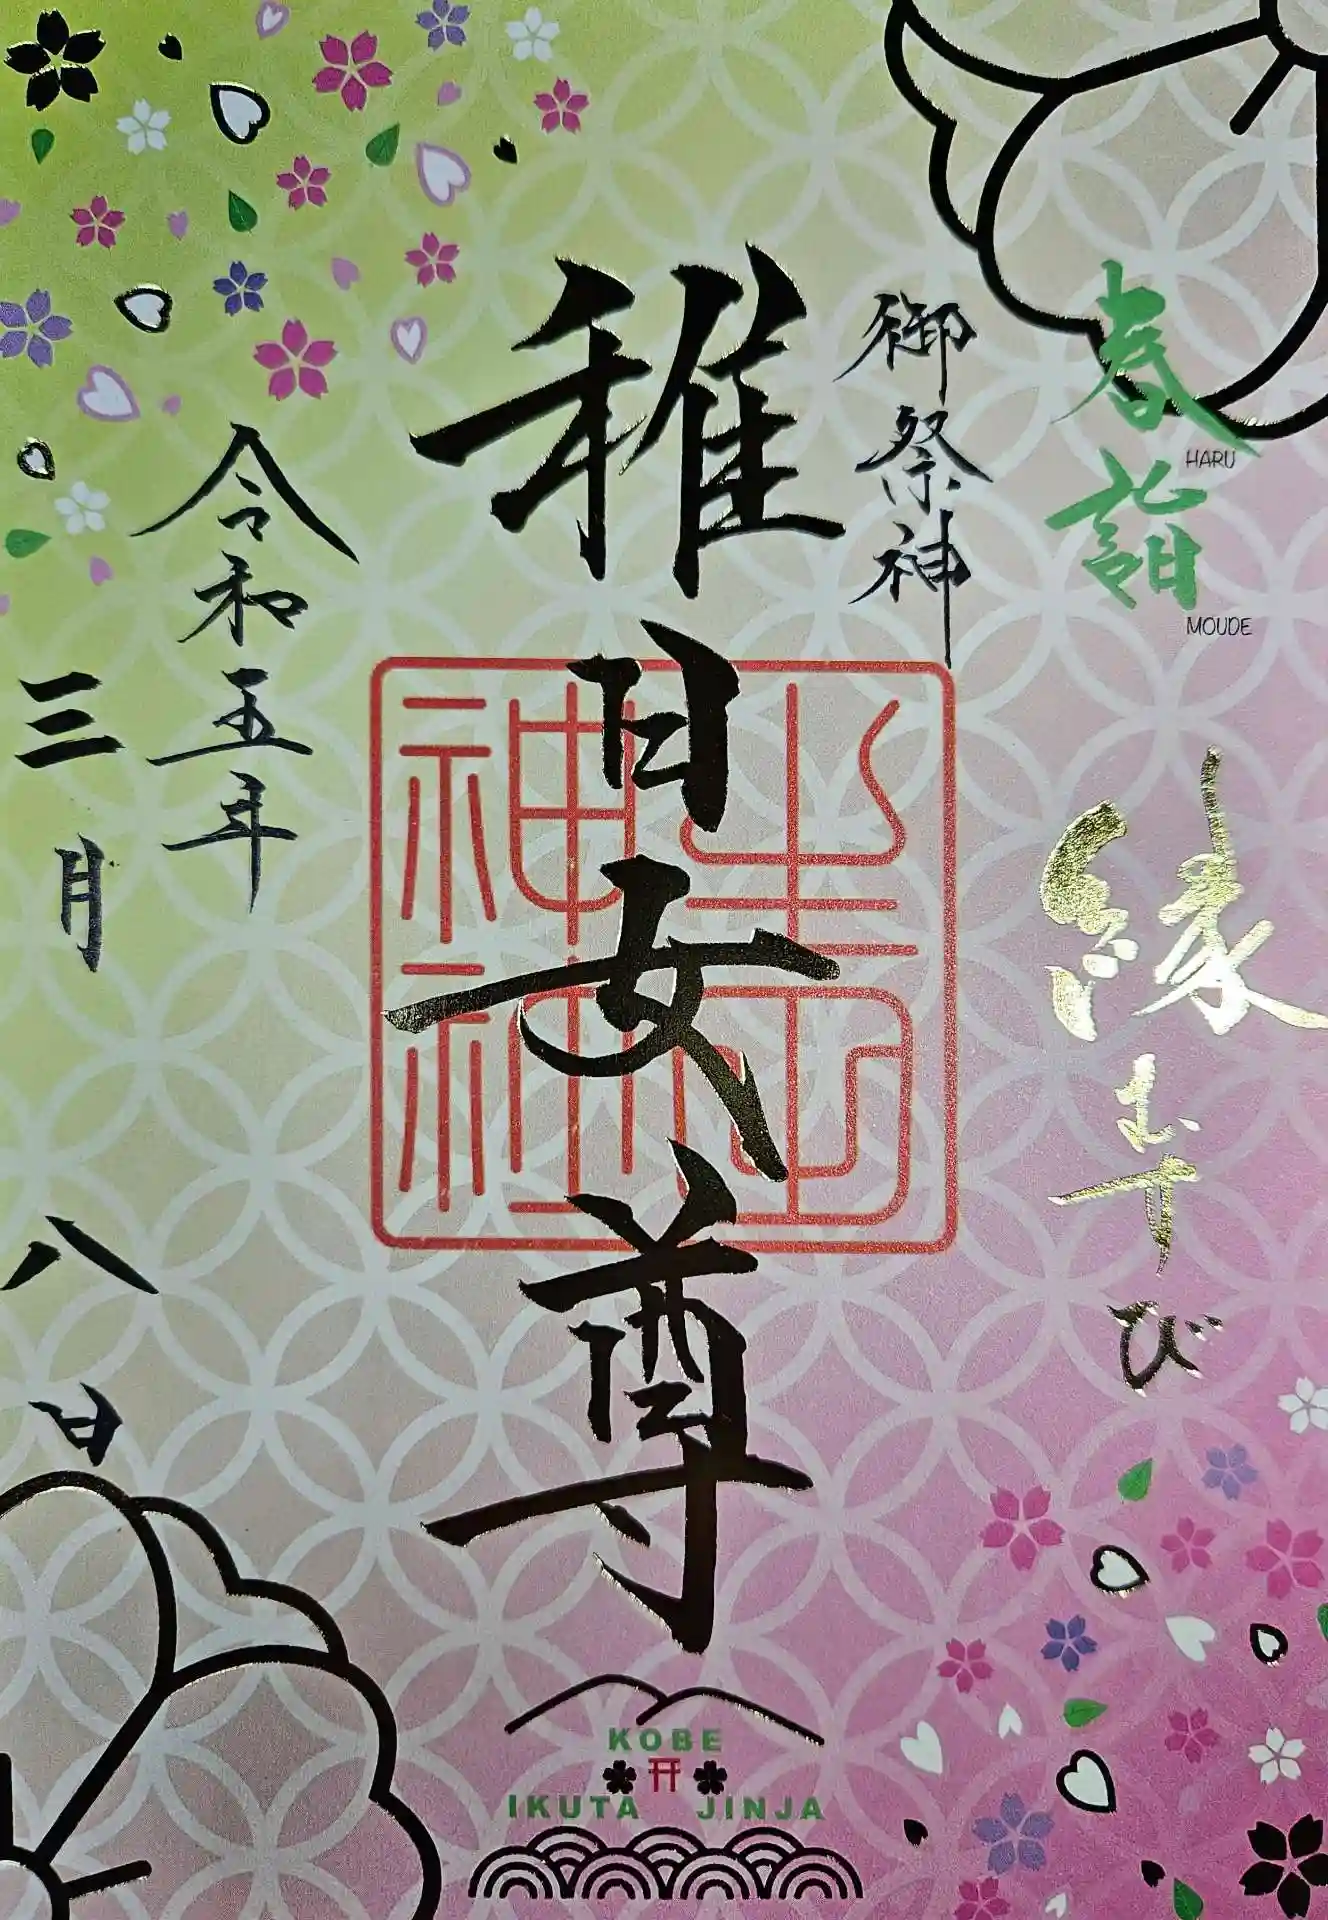 春詣
HARU
MOUDE
縁むすび
御祭神
稚日女尊
生田神社
神社
令和五年
三月
八日
KOBE
IKUTA JINJA